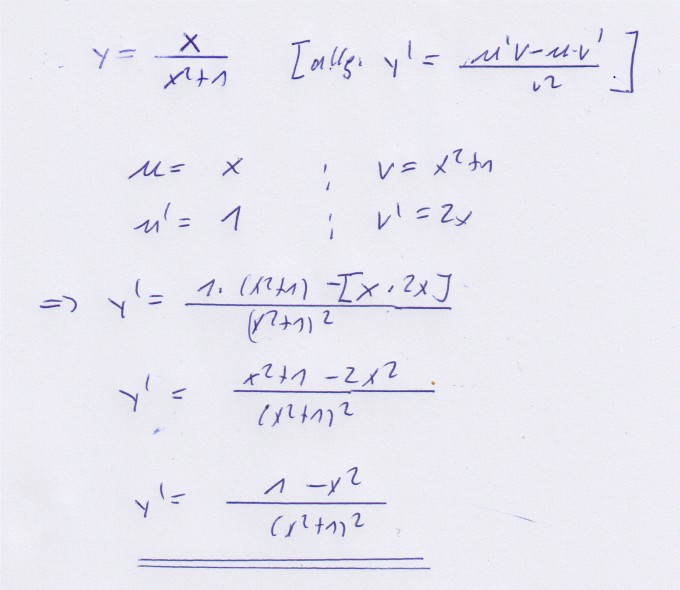 y = x/(x²+1) [allg. y' = (u'v-u·v')/v²]
u = x ; v = x²+1
u' = 1 ; v' = 2x
=> y' = (1·(x²+1) -[x·2x])/(x²+1)²
y' = (x²+1 -2x²)/(x²+1)²
y' = (1 -x²)/(x²+1)²